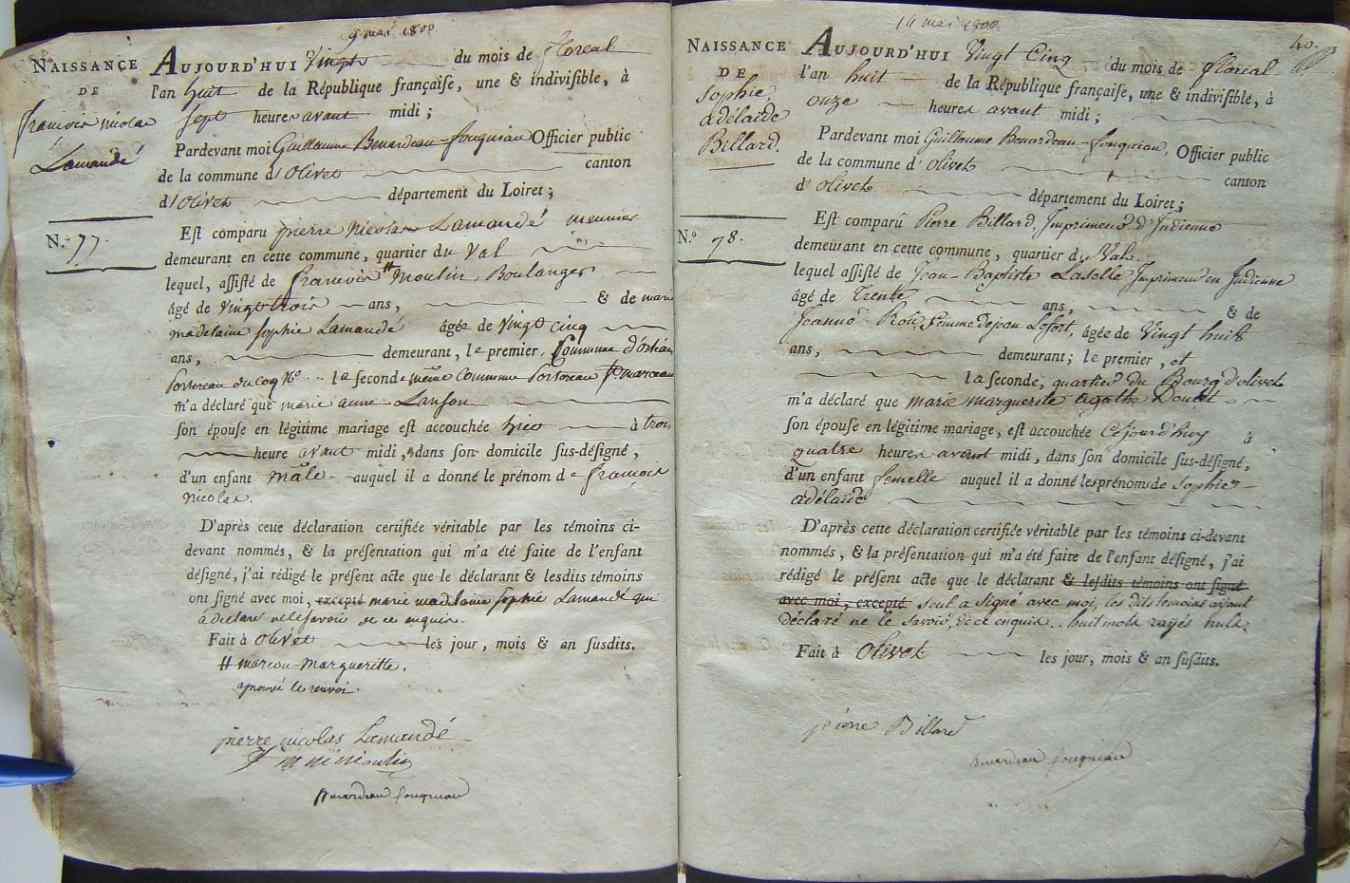 9 mai 1800
NAISSANCE
DE
francois nicolas
Lamandé
N.º 77.
AUJOURD'HUI Vingt du mois de floreal
l'an huit de la République françaife, une & indivifible, à
fept heures avant midi ;
Pardevant moi Guillaume Benardeau-fouqueau Officier public
de la commune d'Olivet canton
d'Olivet département du Loiret ;
Eft comparu pierre Nicolas Lamandé meunier
demeurant en cette commune, quartier du Val
lequel, affifté de francois # Moulin, Boulanger
âgé de vingt trois ans, & de marie
madelaine fophie Lamandé âgée de vingt cinq
ans, demeurant, le premier, Commune d'orléans
portereau du coq Nº la feconde même Commune portereau st marceau
m'a déclaré que marie anne Lanson
fon époufe en légitime mariage eft accouchée hier à trois
heure avant midi, dans fon domicile fus-défigné,
d'un enfant mâle auquel il a donné le prénom de françois
nicolas.
D'après cette déclaration certifiée véritable par les témoins ci-
devant nommés, & la préfentation qui m'a été faite de l'enfant
défigné, j'ai rédigé le préfent acte que le déclarant & lefdits témoins
ont figné avec moi, excepté marie madelaine fophie Lamandé qui
à déclaré ne le favoir de ce enquise.
Fait à Olivet les jour, mois & an fusdits.
# marcou-margueritte.
aprouvé le renvoi.
pierre nicolas Lamandé
f m m moulin
Benardeau fouqueau
14 mai 1800.
40.
NAISSANCE
DE
Sophie
adélaide
Billard.
N.º 78.
AUJOURD'HUI Vingt Cinq du mois de floréal
l'an huit de la République françaife, une & indivifible, à
onze heures avant midi ;
Pardevant moi Guillaume Benardeau-fouqueau, Officier public
de la commune d'Olivet canton
d'Olivet département du Loiret ;
Eft comparû Pierre Billard, Imprimeur d'Indienne
demeurant en cette commune, quartier du Val.
lequel affifté de Jean-Baptiste Laselle Imprimeur en Indienne
âgé de Trente ans, & de
Jeanne Roü, femme de jean Lefort, âgée de Vingt huit
ans, demeurant ; le premier, et
la feconde, quartier du Bourg d'olivet
m'a déclaré que marie marguerite agathe Doutet
fon époufe en légitime mariage, eft accouchée Cejourd'huy à
quatre heures avant midi, dans fon domicile fus-défigné,
d'un enfant femelle auquel il a donné les prénoms de Sophie-
adélaide
D'après cette déclaration certifiée véritable par les témoins ci-devant
nommés, & la préfentation qui m'a été faite de l'enfant défigné, j'ai
rédigé le préfent acte que le déclarant & lefdits témoins ont figné
avec moi, excepté feul a Signé avec moi, les dits temoins ayant
déclaré ne le Savoir, de ce enquis. huit mots rayés nuls.
Fait à Olivet les jour, mois & an fufdits.
pierre Billard
Benardeau fouqueau